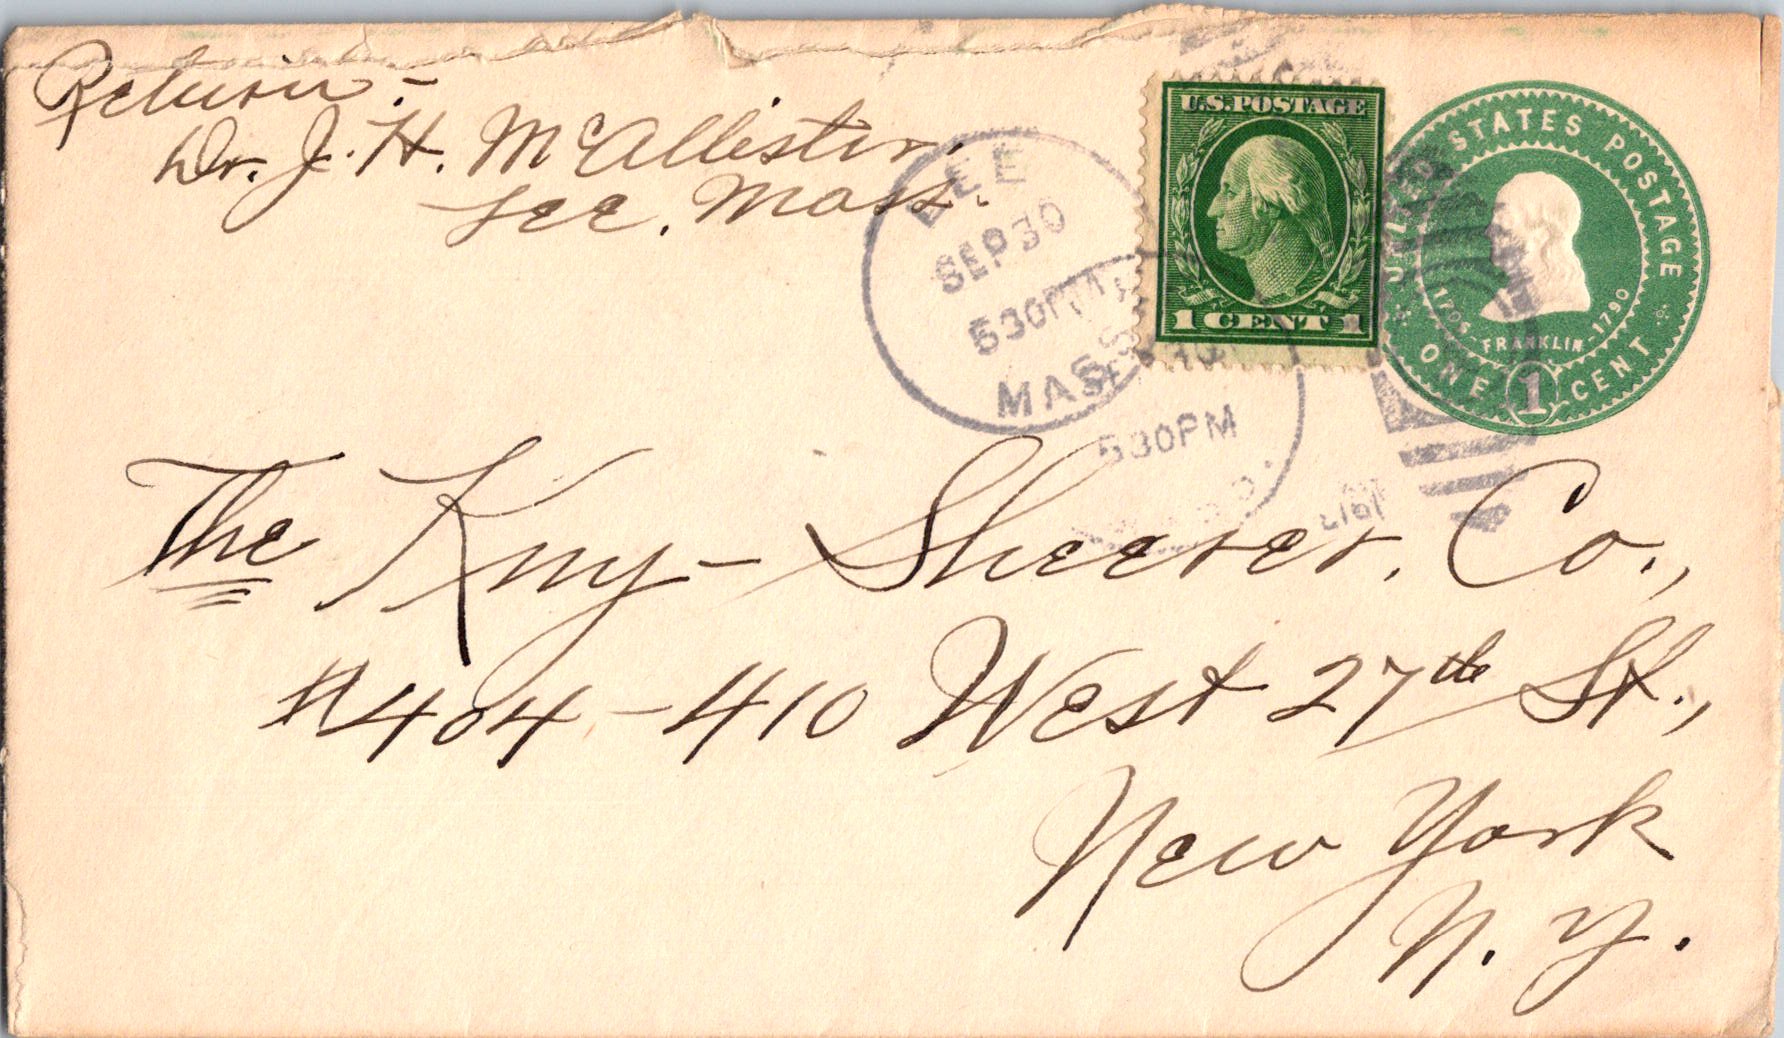 Return -
Dr. J. H. McAllister.
Lee. Mass.
LEE
SEP 30
530PM
MASS
530PM
U.S. POSTAGE
1 CENT 1
STATES POSTAGE
1706 FRANKLIN 1790
ONE 1 CENT
The Kny-Sheerer. Co.,
#404-410 West 27th St.,
New York
N. Y.